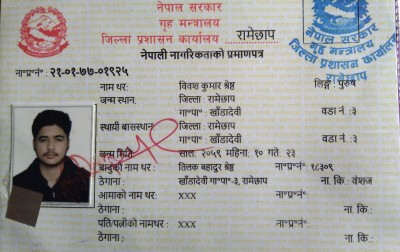 नेपाल सरकार
गृह मन्त्रालय
जिल्ला प्रशासन कार्यालय रामेछाप
नेपाली नागरिकताको प्रमाणपत्र
नेपाल सरकार
गृह मन्त्रालय
जिल्ला प्रशासन कार्यालय
रामेछाप
ना॰प्र॰नं॰ २१-०१-७७-०१९२५
नाम थर: विवश कुमार श्रेष्ठ लिङ्ग: पुरुष
जन्म स्थान: जिल्ला : रामेछाप
गा॰पा॰ : खाँडादेवी वडा नं :३
स्थायी बासस्थान: जिल्ला : रामेछाप
गा॰पा॰ : खाँडादेवी वडा नं :३
जन्म मिति: साल: २०५९ महिना: १० गते: २३
बाबुको नाम थर: तिलक बहादुर श्रेष्ठ ना॰प्र॰नं॰ :१८३०९
ठेगाना : खाँडादेवी गा॰पा॰-३, रामेछाप ना. कि : वंशज
आमाको नाम थर: xxx ना॰प्र॰नं॰ :
ठेगाना : xxx ना.कि :
पति/पत्नीको नाम थर: xxx ना॰प्र॰नं॰ :
ठेगाना : ना.कि :